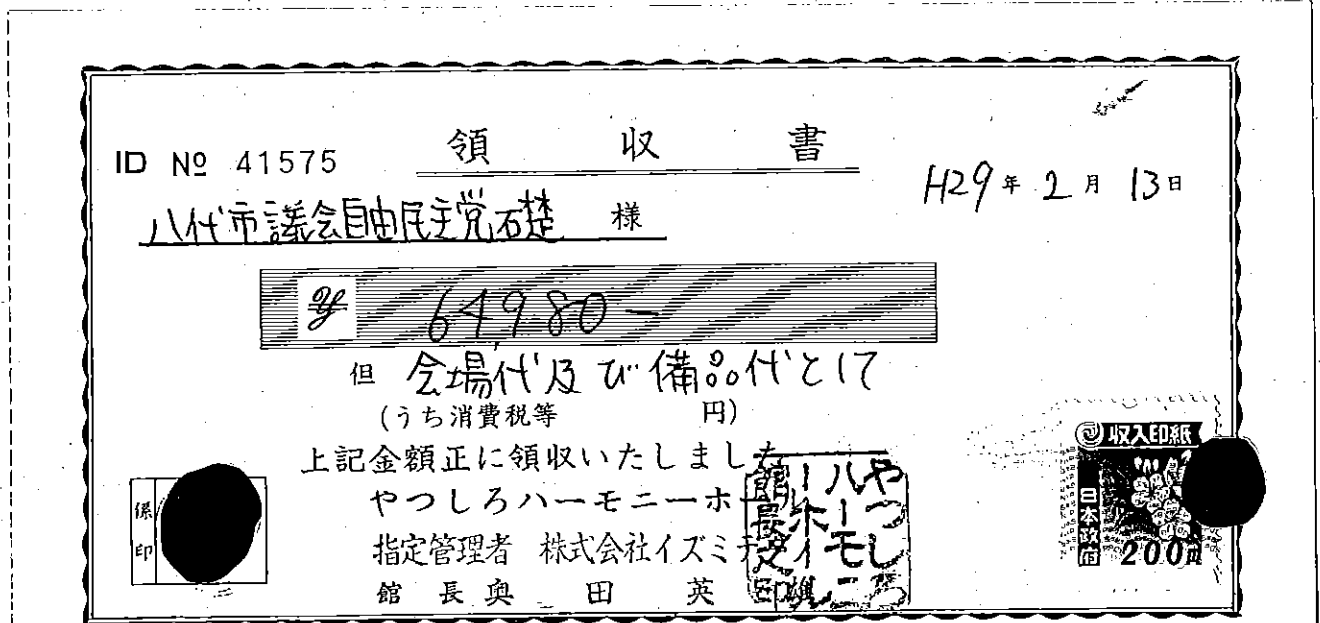 ID № 41575 領収書
H29年2月13日
八代市議会自由民主党石楚 様
¥ 64,980-
但 会場代及び備品代として
(うち消費税等 円)
上記金額正に領収いたしました
やつしろハーモニーホー
指定管理者 株式会社イズミテ
館長 奥田英
係印
やつしろハーモニーホール館長之印
収入印紙
日本政府
200円